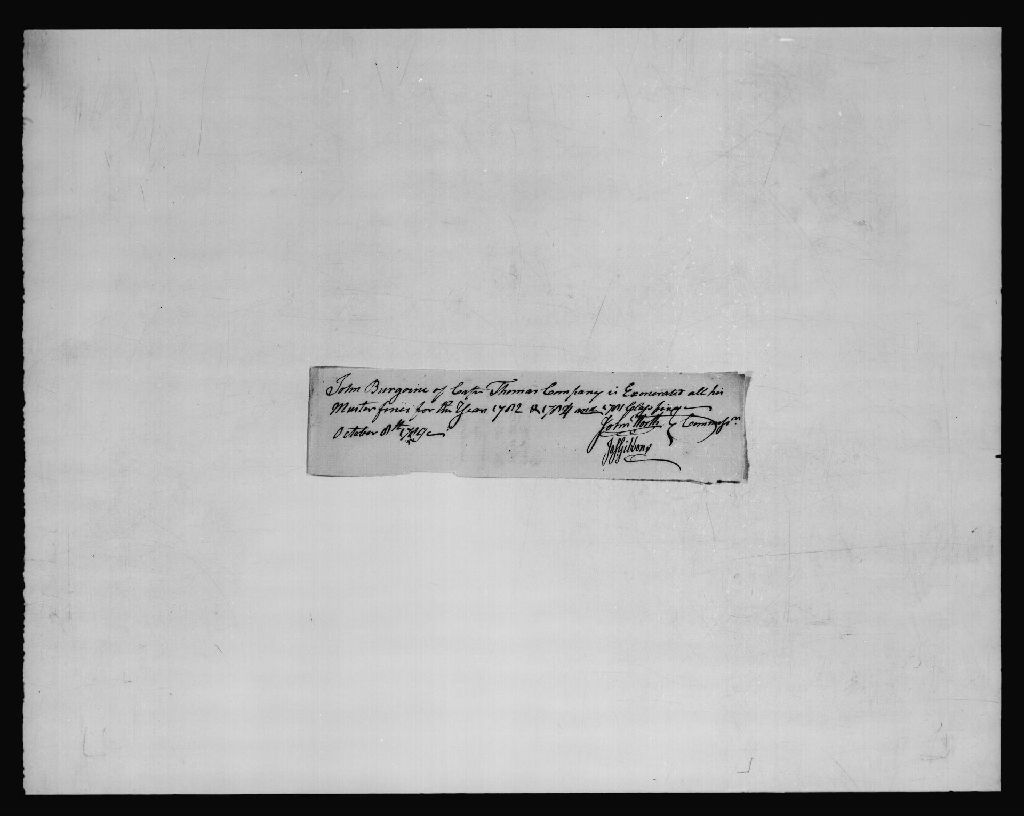 John Burgoine of Capt Thomas Company is Exonerated all his
Muster fines for the Year 1782 & 1783 and
October 8th John Worth Commiss.rs
Jas Gibbons